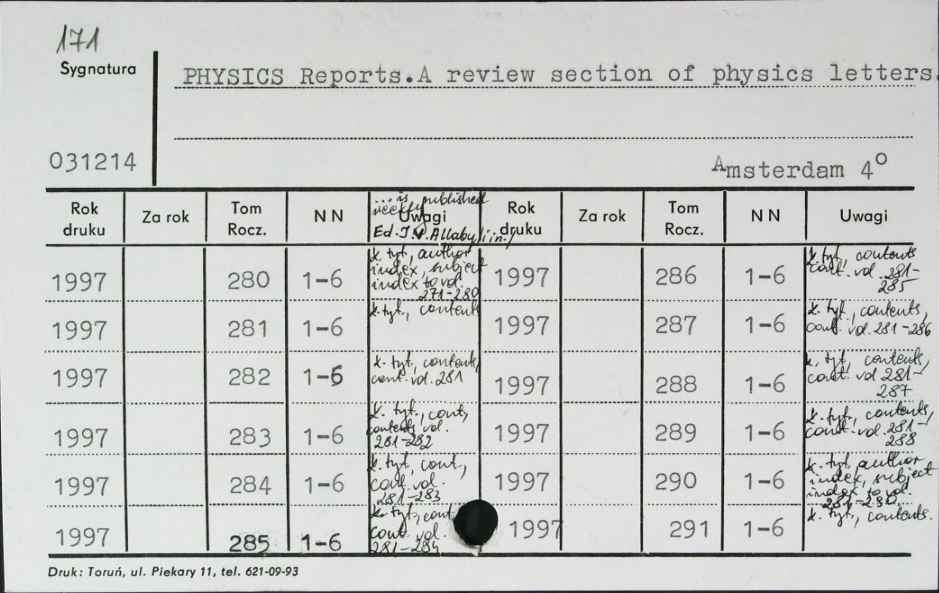 171
Sygnatura
PHYSICS Reports.A review section of physics letters.
031214
Amsterdam 4°
Rok druku Za rok Tom Rocz. N N Uwagi Rok druku Za rok Tom Rocz. N N Uwagi
...is published
weekly
Ed. J.V. Allaby
1997 280 1-6 k. tyt, author index, subject index to vol. 271-280 1997 286 1-6 k. tyt, contents cont. vol. 281-285
1997 281 1-6 k. tyt., contents 1997 287 1-6 k. tyt., contents, cont. vol. 281-286
1997 282 1-6 k. tyt., contents, cont. vol. 281 1997 288 1-6 k. tyt, contents, cont. vol 281-287
1997 283 1-6 k. tyt., cont, contents vol. 281-282 1997 289 1-6 k. tyt., contents, cont. vol. 281-288
1997 284 1-6 k. tyt, cont, cont. vol. 281-283 1997 290 1-6 k. tyt, author index, subject index to vol.
1997 285 1-6 k. tyt, cont. cont. vol. 281-284 1997 291 1-6 k. tyt, contents.
Druk: Toruń, ul. Piekary 11, tel. 621-09-93